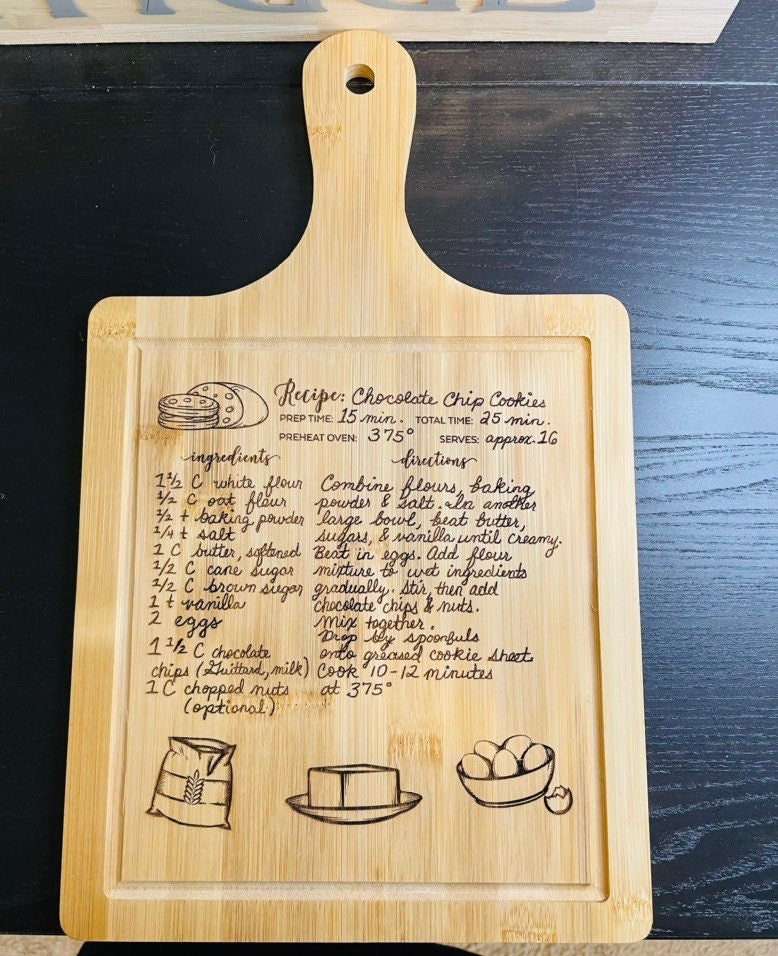 Recipe: Chocolate Chip Cookies
PREP TIME: 15 min. TOTAL TIME: 25 min.
PREHEAT OVEN: 375° SERVES: approx. 16
ingredients
1 1/2 C white flour
1/2 C oat flour
1/2 t baking powder
1/4 t salt
1 C butter, softened
1/2 C cane sugar
1/2 C brown sugar
1 t vanilla
2 eggs
1 1/2 C chocolate
chips (Guittard, milk)
1 C chopped nuts
(optional)
directions
Combine flours, baking
powder & salt. In another
large bowl, beat butter,
sugars, & vanilla until creamy.
Beat in eggs. Add flour
mixture to wet ingredients
gradually. Stir, then add
chocolate chips & nuts.
Mix together.
Drop by spoonfuls
onto greased cookie sheet.
Cook 10-12 minutes
at 375°